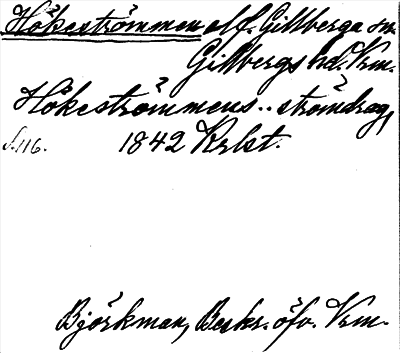 Hökeströmmen elf. Gillberga sn.
Gillbergs hd. Vrm.
Hökeströmmens.. strömdrag,
s. 116. 1842 Krlst.
Björkman, Beskr. öfv. Vrm.